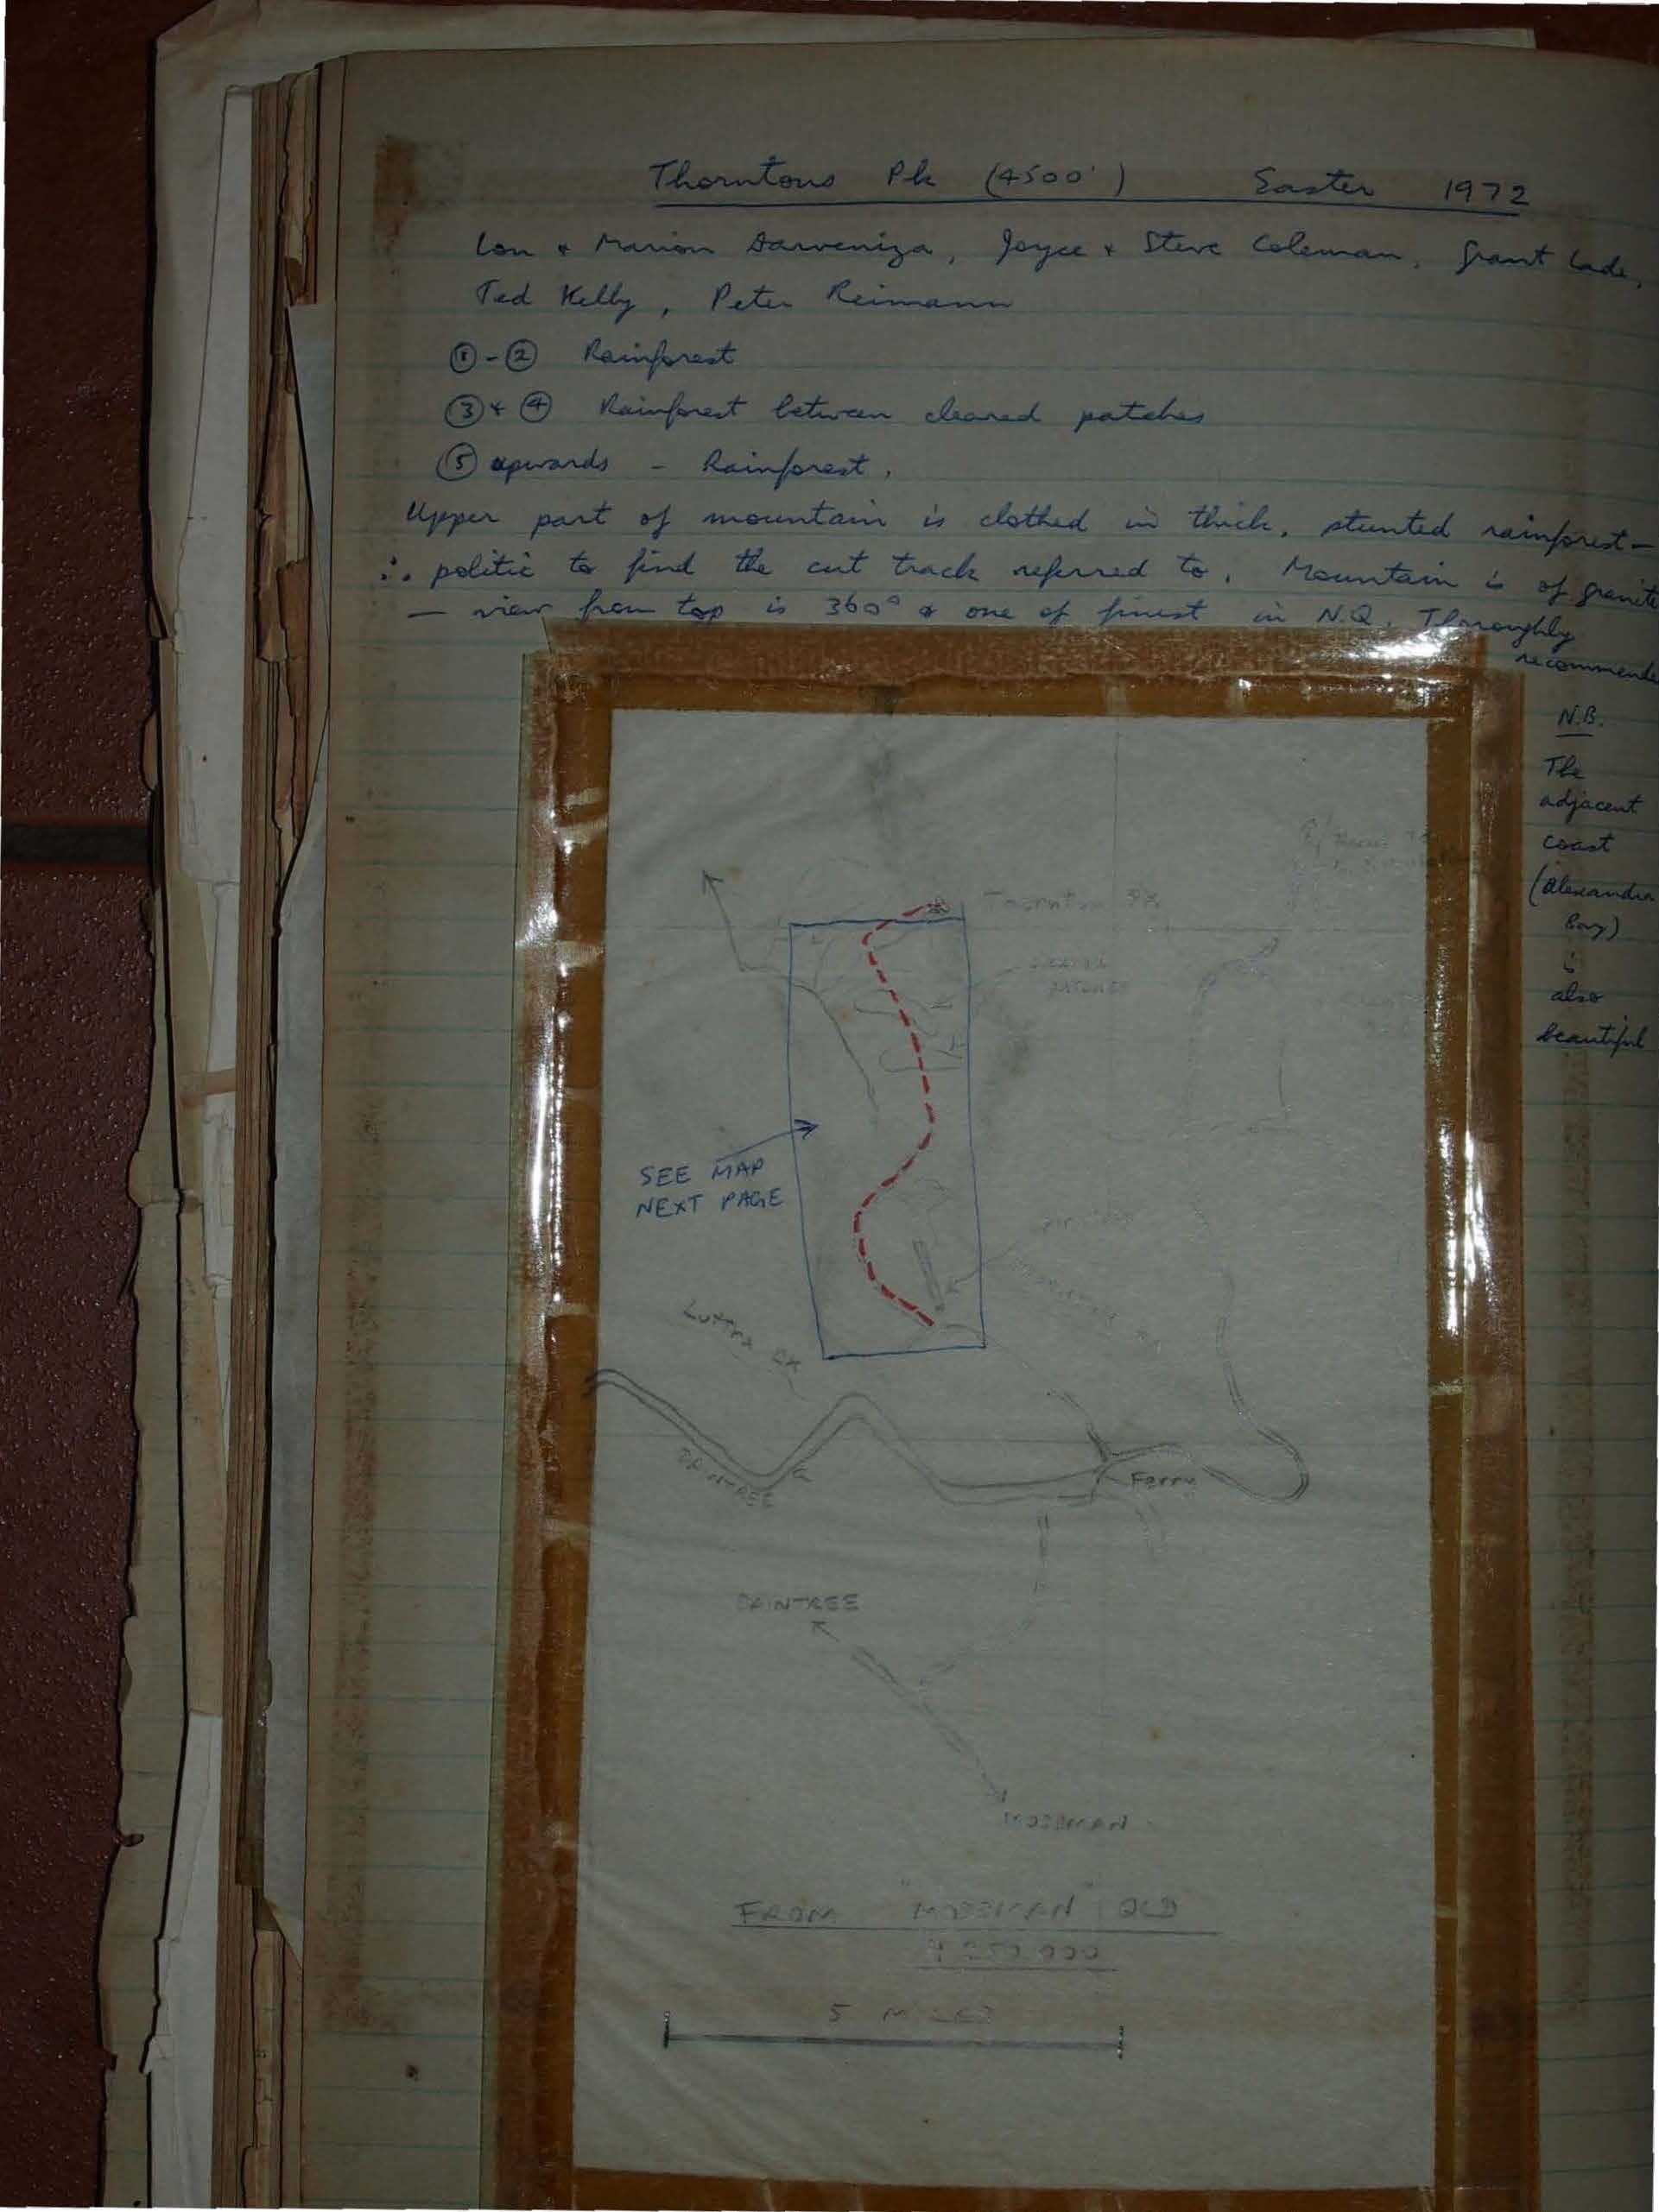 Thorntons Pk (4500') Easter 1972
Lou & Marion Darveniza, Joyce & Steve Coleman, Grant Lade,
Ted Kelly, Peter Reimann
① - ② Rainforest
③ & ④ Rainforest between cleared patches
⑤ upwards - Rainforest.
Upper part of mountain is clothed in thick, stunted rainforest -
∴ politic to find the cut track referred to. Mountain is of granite
- view from top is 360° & one of finest in N.Q. Thoroughly
recommende
N.B.
The
adjacent
coast
(Alexandra
Bay)
is
also
beautiful
Thornton Pk
CLEARED
PATCHES
SEE MAP
NEXT PAGE
AIRSTRIP
CK
DAINTREE
Ferry
DAINTREE
MOSSMAN
FROM "MOSSMAN" QLD
250 000
5 MILES